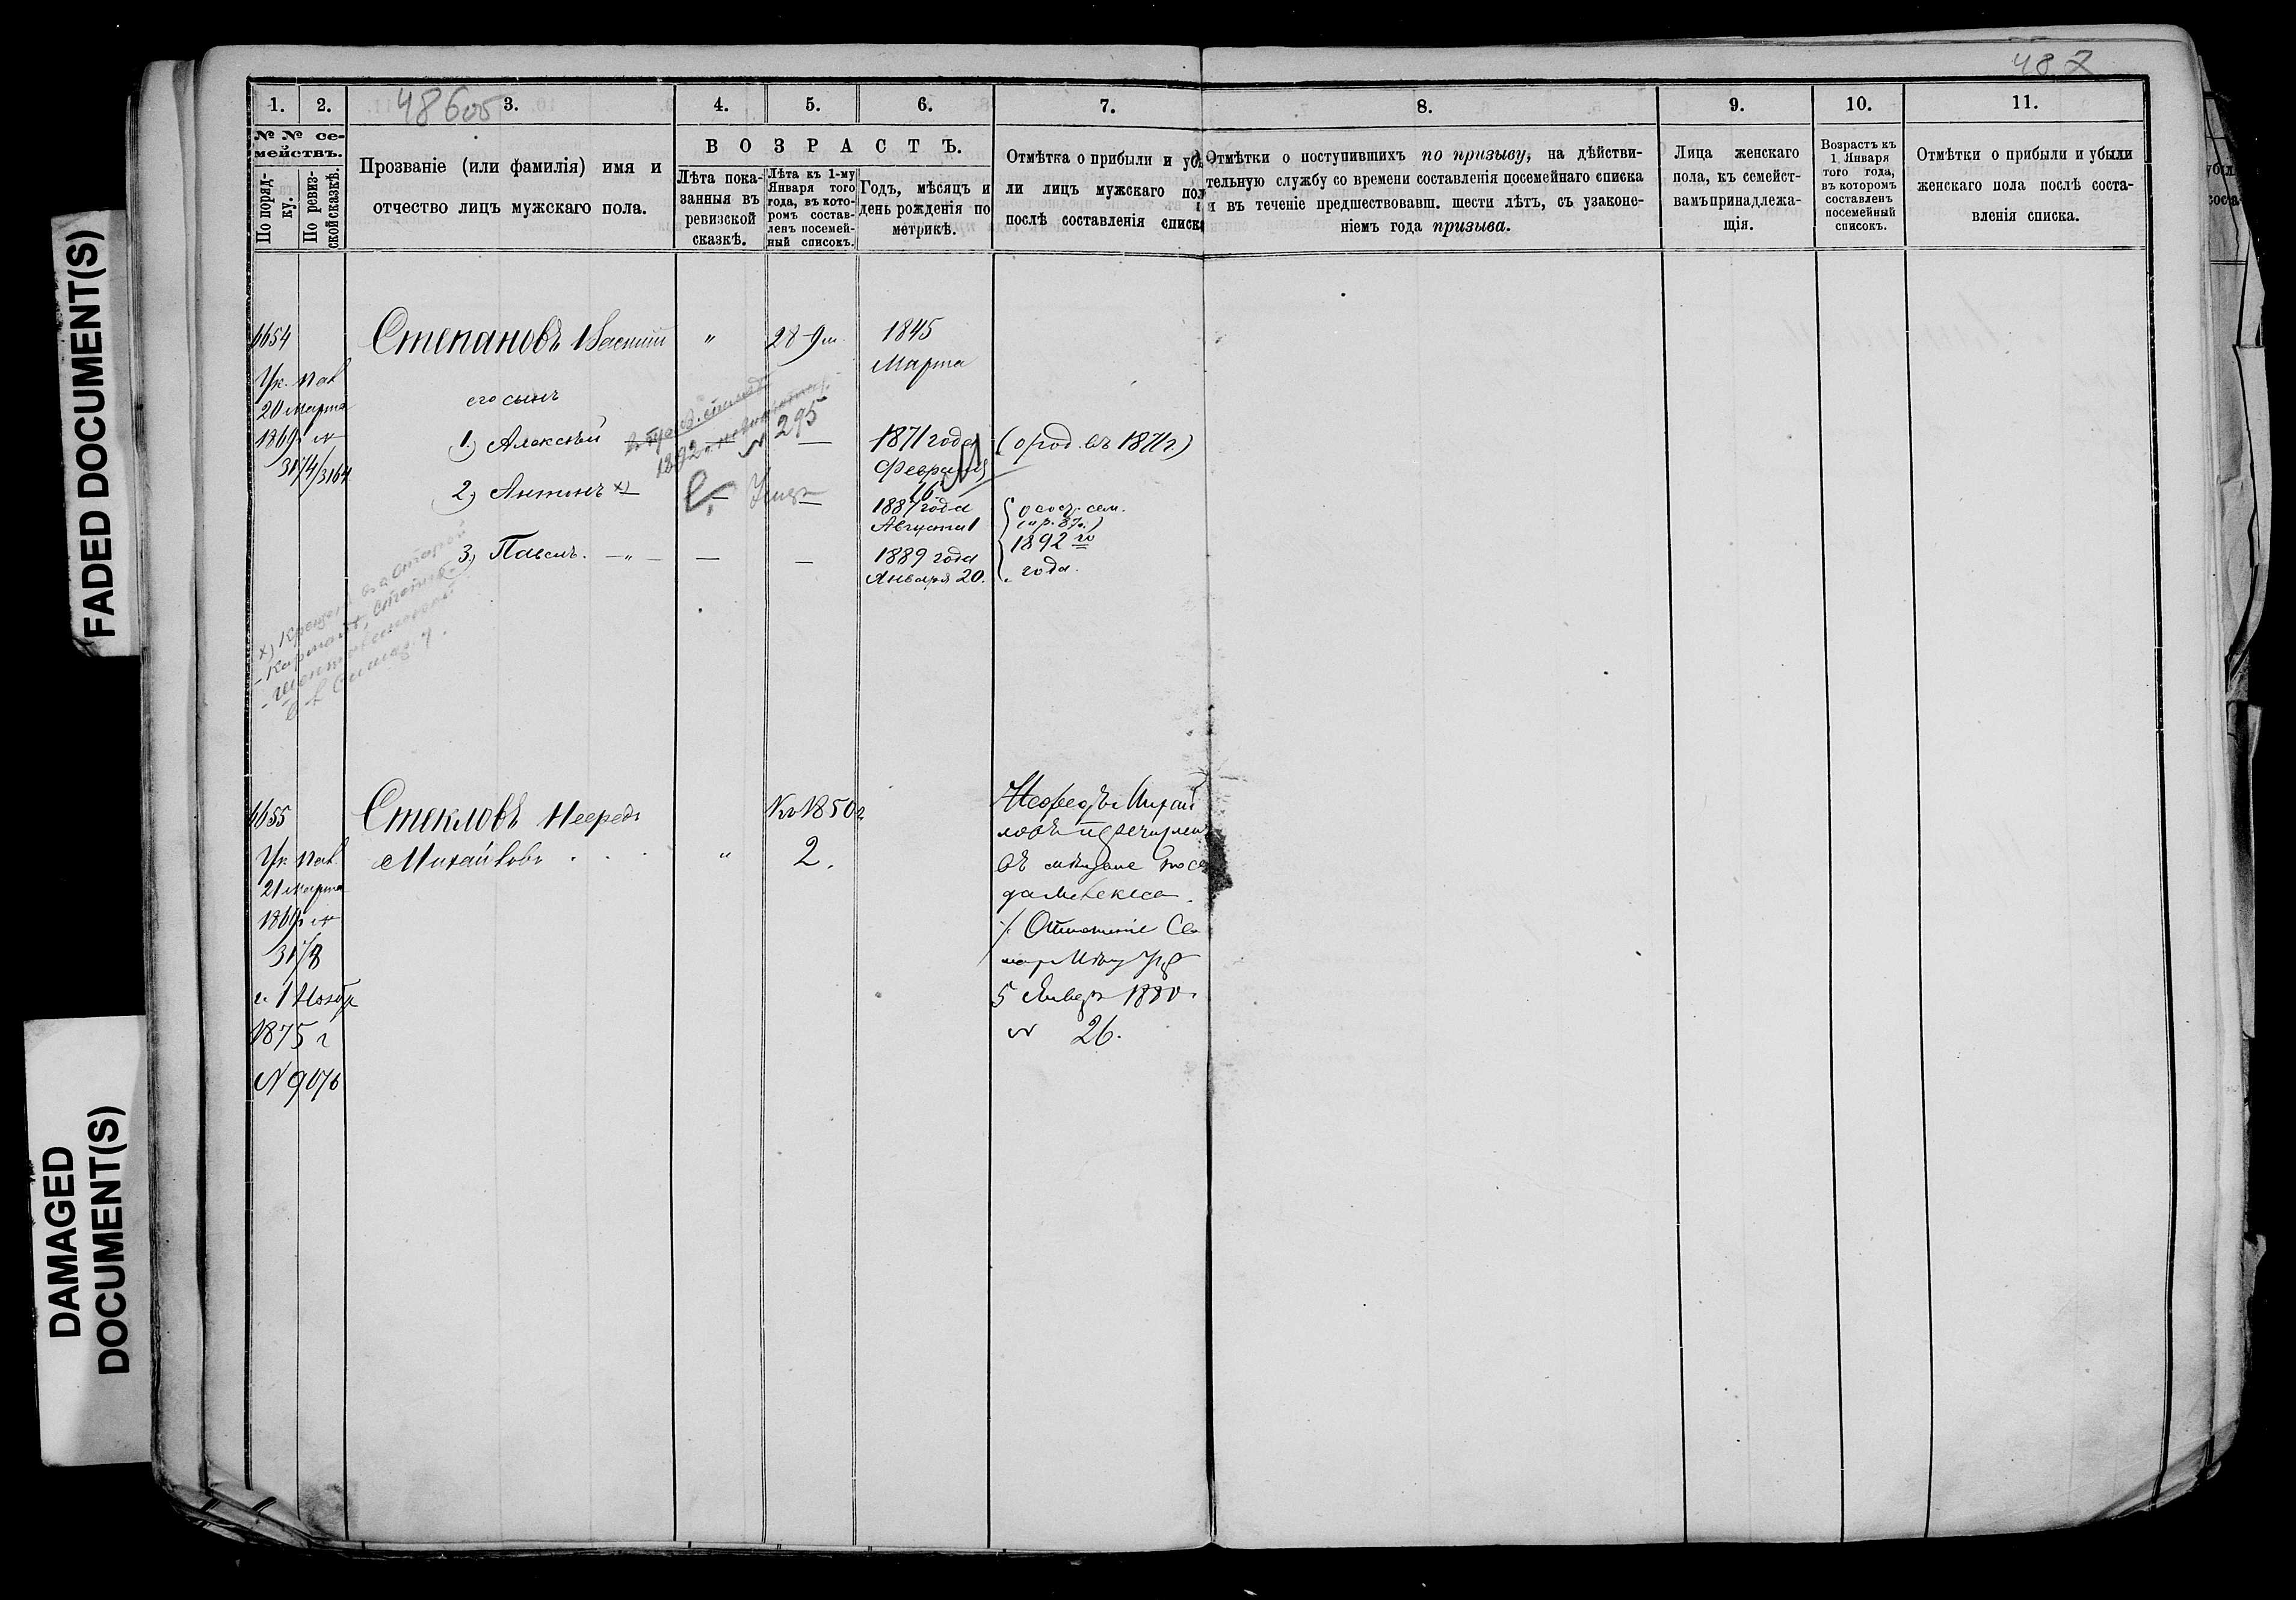 FADED DOCUMENT(S)
DAMAGED
DOCUMENT(S)
48605
1.
2.
3.
4.
5.
6.
7.
8.
9.
10.
11.
№ № се-
мействъ.
По поряд-
ку.
По ревиз-
ской сказкѣ.
Прозваніе (или фамилія) имя и
отчество лицъ мужскаго пола.
ВОЗРАСТЪ.
Лѣта пока-
занныя въ
ревизской
сказкѣ.
Лѣта къ 1-му
Января того
года, въ кото-
ромъ состав-
ленъ посемей-
ный список.
Годъ, мѣсяцъ и
день рожденія по
метрикѣ.
Отмѣтка о прибыли и убы
ли лицъ мужскаго пол
послѣ составленія списка
Отмѣтки о поступившихъ по призыву, на дѣйстви-
тельную службу со времени составленія посемейнаго списка
и въ теченіе предшествовавш. шести лѣтъ, съ узаконе-
ніемъ года призыва.
Лица женскаго
пола, къ семейст-
вамъ принадлежа-
щія.
Возрастъ къ
1 Января
того года,
въ которомъ
составленъ
посемейный
списокъ.
Отмѣтки о прибыли и убыли
женскаго пола послѣ соста-
вленія списка.
6654
Ук. Пал
20 Марта
1869 г №
3174/3164
Степановъ Василій
" 28-9м.
1845
Марта
его сынъ
1) Алексѣй
1892
№ 295
1871 года
Февраля
16
(о род. въ 1871 г.)
2) Антонъ х)
1887 года
Августа 1
3) Павелъ. — " —
1889 года
Января 20.
1892 го
года.
х) Крещенъ
6655
Ук. Пал.
21 Марта
1869 г №
3178
и 1 Нояб
1875 г
№ 9076
Стекловъ
Михайловъ . . .
"
Къ 1850 г
2.
Михай
ловъ перечислен
въ мѣщане поса
да Мелекеса.
Отношеніе Са
5 Январ 1880
№ 26.